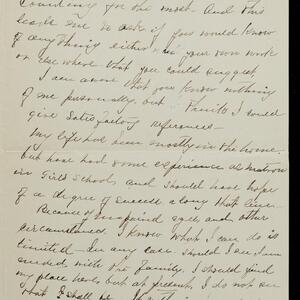 Counting for the most. And this
leads me to ask if you would know
of anything either in your own work
or else where that you could suggest
I am aware that you know nothing
of me personally, but I could
give satisfactory references—
My life has been mostly in the home,
but have had some experience as matron
in Girls Schools and should have hope
of a degree of success along that line.
Because of impaired eyes and other
circumstances, I know what I can do is
limited— In any case. Should I see I am
needed with the family, I should find
my place here, but at present, I do not see
that I shall be